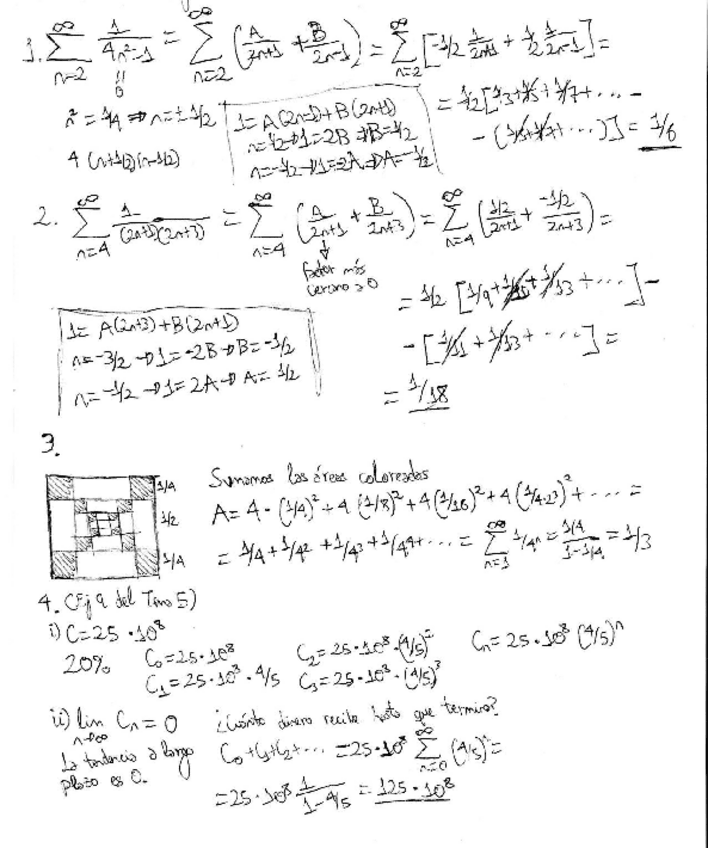 1. ∞∑n=2 1/(4n²-1) = ∞∑n=2 (A/(2n+1) + B/(2n-1)) = ∞∑n=2 [-1/2 1/(2n+1) + 1/2 1/(2n-1)] =
" 0
n² = 1/4 ⇒ n = ± 1/2
4 (n+1/2)(n-1/2)
1 = A(2n-1) + B(2n+1)
n = 1/2 → 1 = 2B → B = 1/2
n = -1/2 → 1 = -2A → A = -1/2
= 1/2 [1/3 + 1/5 + 1/7 + ... -
- (1/5 + 1/7 + ...)] = 1/6
2. ∞∑n=4 1/((2n+1)(2n+3)) = ∞∑n=4 (A/(2n+1) + B/(2n+3)) = ∞∑n=4 ((1/2)/(2n+1) + (-1/2)/(2n+3)) =
factor más
cercano a 0
1 = A(2n+3) + B(2n+1)
n = -3/2 → 1 = -2B → B = -1/2
n = -1/2 → 1 = 2A → A = 1/2
= 1/2 [1/9 + 1/11 + 1/13 + ...] -
- [1/11 + 1/13 + ...] =
= 1/18
3.
1/4
1/2
1/4
Sumamos las áreas coloreadas
A = 4 · (1/4)² + 4 (1/8)² + 4 (1/16)² + 4 (1/4·2³)² + ... =
= 1/4 + 1/4² + 1/4³ + 1/4⁴ + ... = ∞∑n=1 1/4ⁿ = (1/4)/(1-1/4) = 1/3
4. (Ej 9 del Tema 5)
i) C = 25 · 10⁸
20% C₀ = 25 · 10⁸ C₂ = 25 · 10⁸ · (4/5)² Cₙ = 25 · 10⁸ (4/5)ⁿ
C₁ = 25 · 10⁸ · 4/5 C₃ = 25 · 10⁸ · (4/5)³
ii) lim n→∞ Cₙ = 0 ¿Cuánto dinero recibe hasta que termina?
La tendencia a largo
plazo es 0.
C₀ + C₁ + C₂ + ... = 25 · 10⁸ ∞∑n=0 (4/5)ⁿ =
= 25 · 10⁸ 1/(1-4/5) = 125 · 10⁸